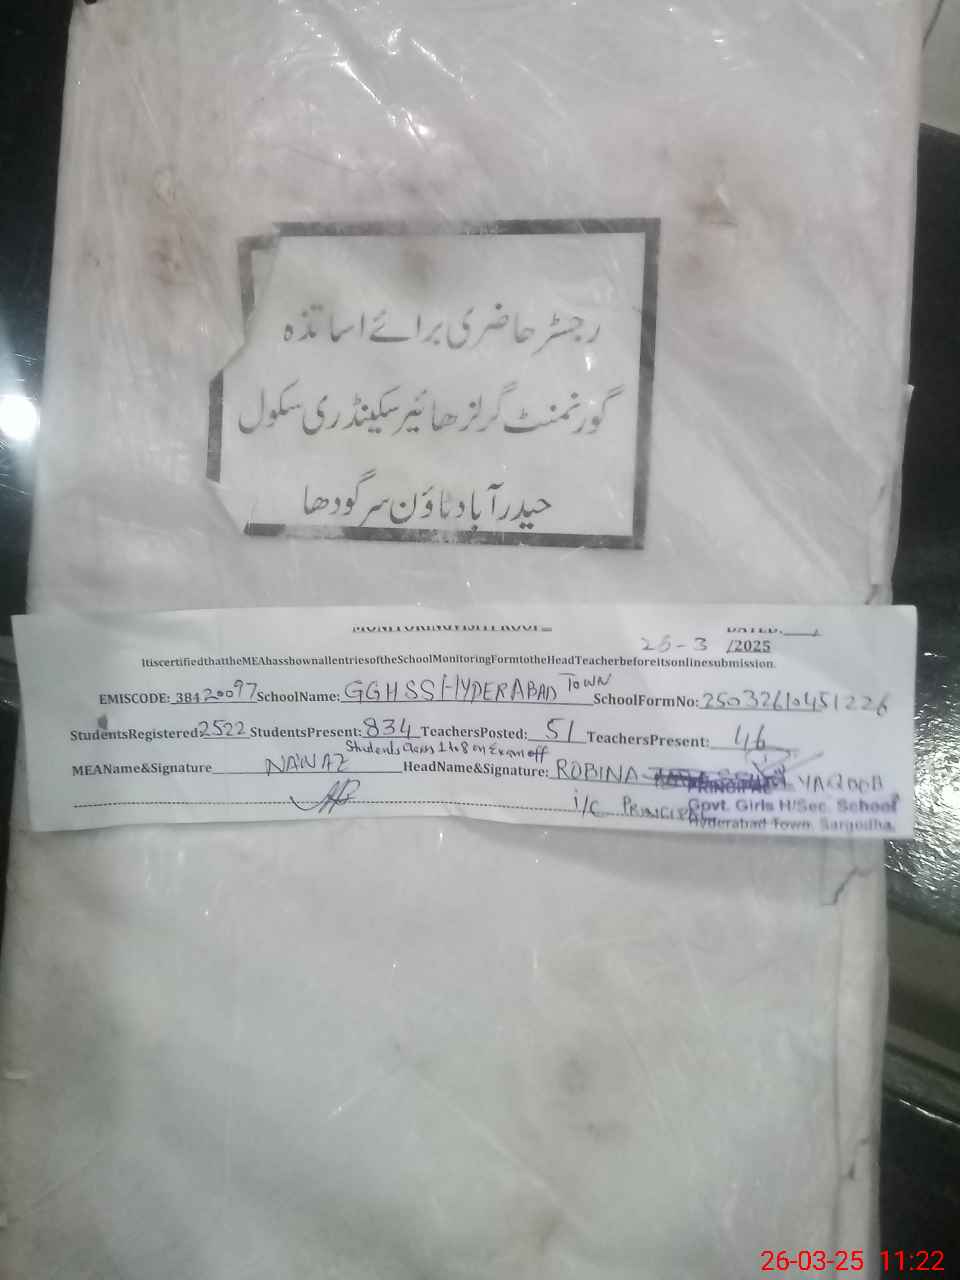 رجسٹر حاضری برائے اساتذہ
گورنمنٹ گرلز ھائیر سکینڈری سکول
حیدرآباد ٹاؤن سرگودھا
MONITORINGVISITPROOF DATED:
26-3 /2025
ItiscertifiedthattheMEAhasshownallentriesoftheSchoolMonitoringFormtotheHeadTeacherbeforeitsonlinesubmission.
EMISCODE: 38420097 SchoolName: GGHSS HYDERABAD TOWN SchoolFormNo: 25032610451226
StudentsRegistered 2522 StudentsPresent: 834 TeachersPosted: 51 TeachersPresent: 46
Students Class 1 to 8 on Exam off
MEAName&Signature NAWAZ HeadName&Signature: ROBINA YAQOOB
PRINCIPAL
i/C PRINCIPAL Govt. Girls H/Sec. School
Hyderabad Town, Sargodha.
26-03-25 11:22